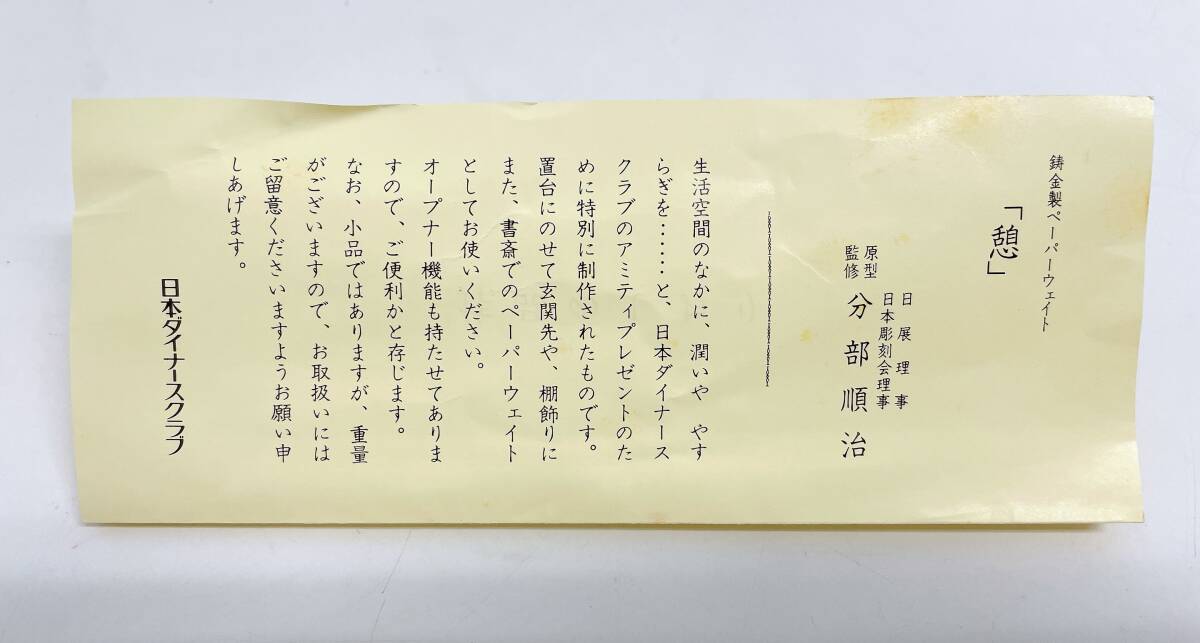 鋳金製ペーパーウェイト
「憩」
日展理事
日本彫刻会理事
原型
監修
分部順治
生活空間のなかに、潤いや やす
らぎを……と、日本ダイナース
クラブのアミティプレゼントのた
めに特別に制作されたものです。
置台にのせて玄関先や、棚飾りに
また、書斎でのペーパーウェイト
としてお使いください。
オープナー機能も持たせてありま
すので、ご便利かと存じます。
なお、小品ではありますが、重量
がございますので、お取扱いには
ご留意くださいますようお願い申
しあげます。
日本ダイナースクラブ